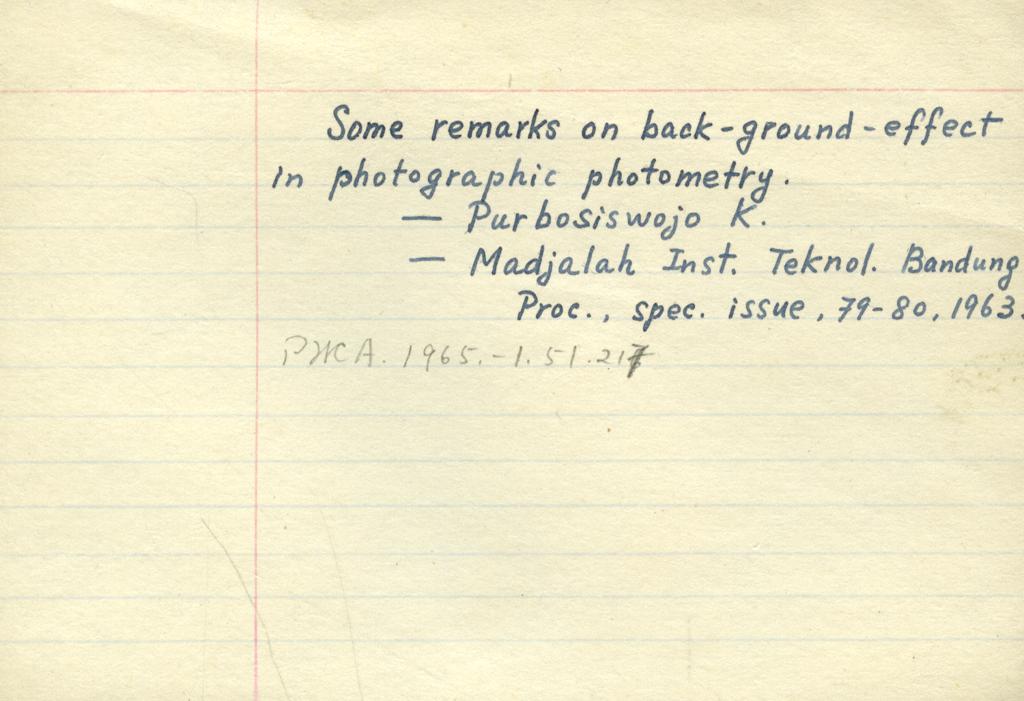 Some remarks on back-ground-effect
in photographic photometry.
— Purbosiswojo K.
— Madjalah Inst. Teknol. Bandung
Proc., spec. issue, 79-80, 1963.
РЖА. 1965.-1.51.217